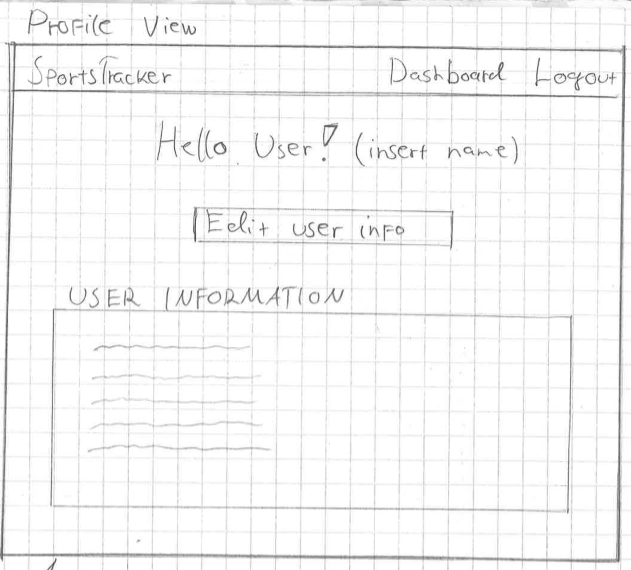 Profile View
SportsTracker Dashboard Logout
Hello User! (insert name)
Edit user info
USER INFORMATION